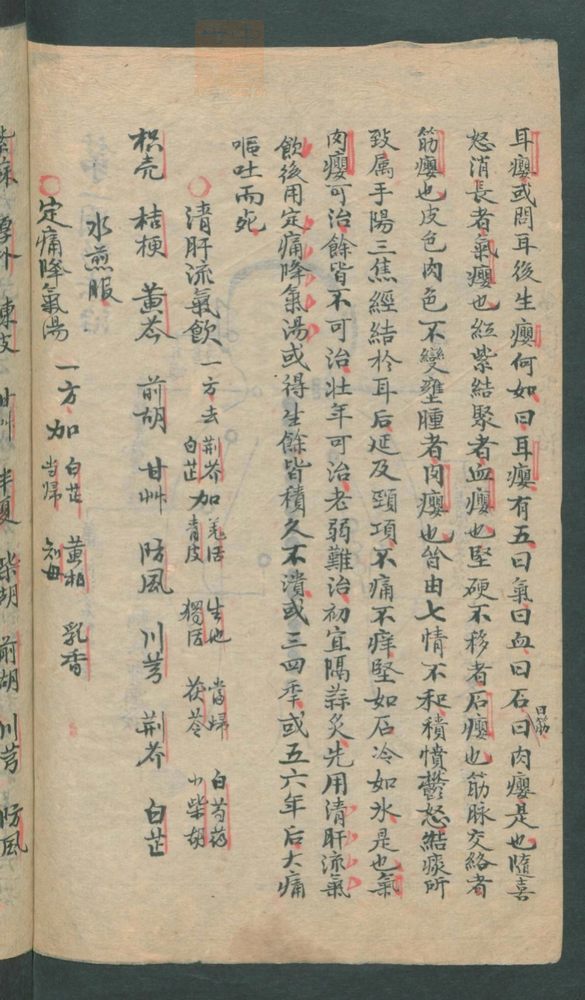 耳癭或問耳後生癭何如曰耳癭有五曰氣曰血曰石曰肉曰筋癭是也隨喜
怒消長者氣癭也紅紫結聚者血癭也堅硬不移者石癭也筋脉交絡者
筋癭也皮色肉色不變壅腫者肉癭也皆由七情不和積憤鬱怒結痰所
致属手陽三焦經結於耳后延及頸項不痛不痒堅如石冷如氷是也氣
肉癭可治餘皆不可治壮年可治老弱難治初宜隔蒜灸先用清肝流氣
飲後用定痛降氣湯或得生餘皆積久不潰或三四季或五六年后大痛
嘔吐而死
清肝流氣飲 一方去荊芥白芷 加羌活青皮 生地獨活 當帰茯苓 白芍葯小柴胡
枳壳 桔梗 黄芩 前胡 甘艸 防風 川芎 荊芥 白芷
水煎服
定痛降氣湯 一方加白芷當帰 黄栢知母 乳香
陳皮 甘艸 半夏 柴胡 前胡 川芎 防風